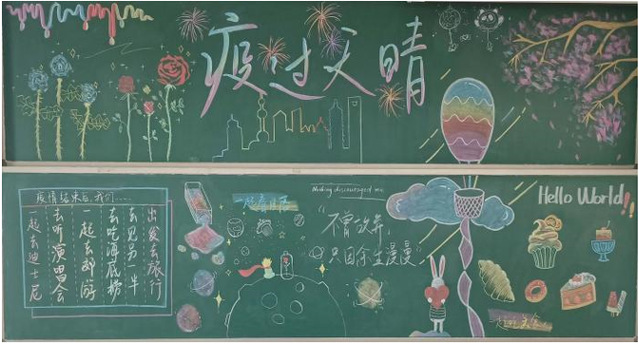 疫过天晴
疫情结束后,我们……
出发去旅行
去见另一半
去吃海底捞
一起去郊游
去听演唱会
一起去迪士尼
discouraged me
“不曾放弃,
只因余生漫漫”
Hello World!!